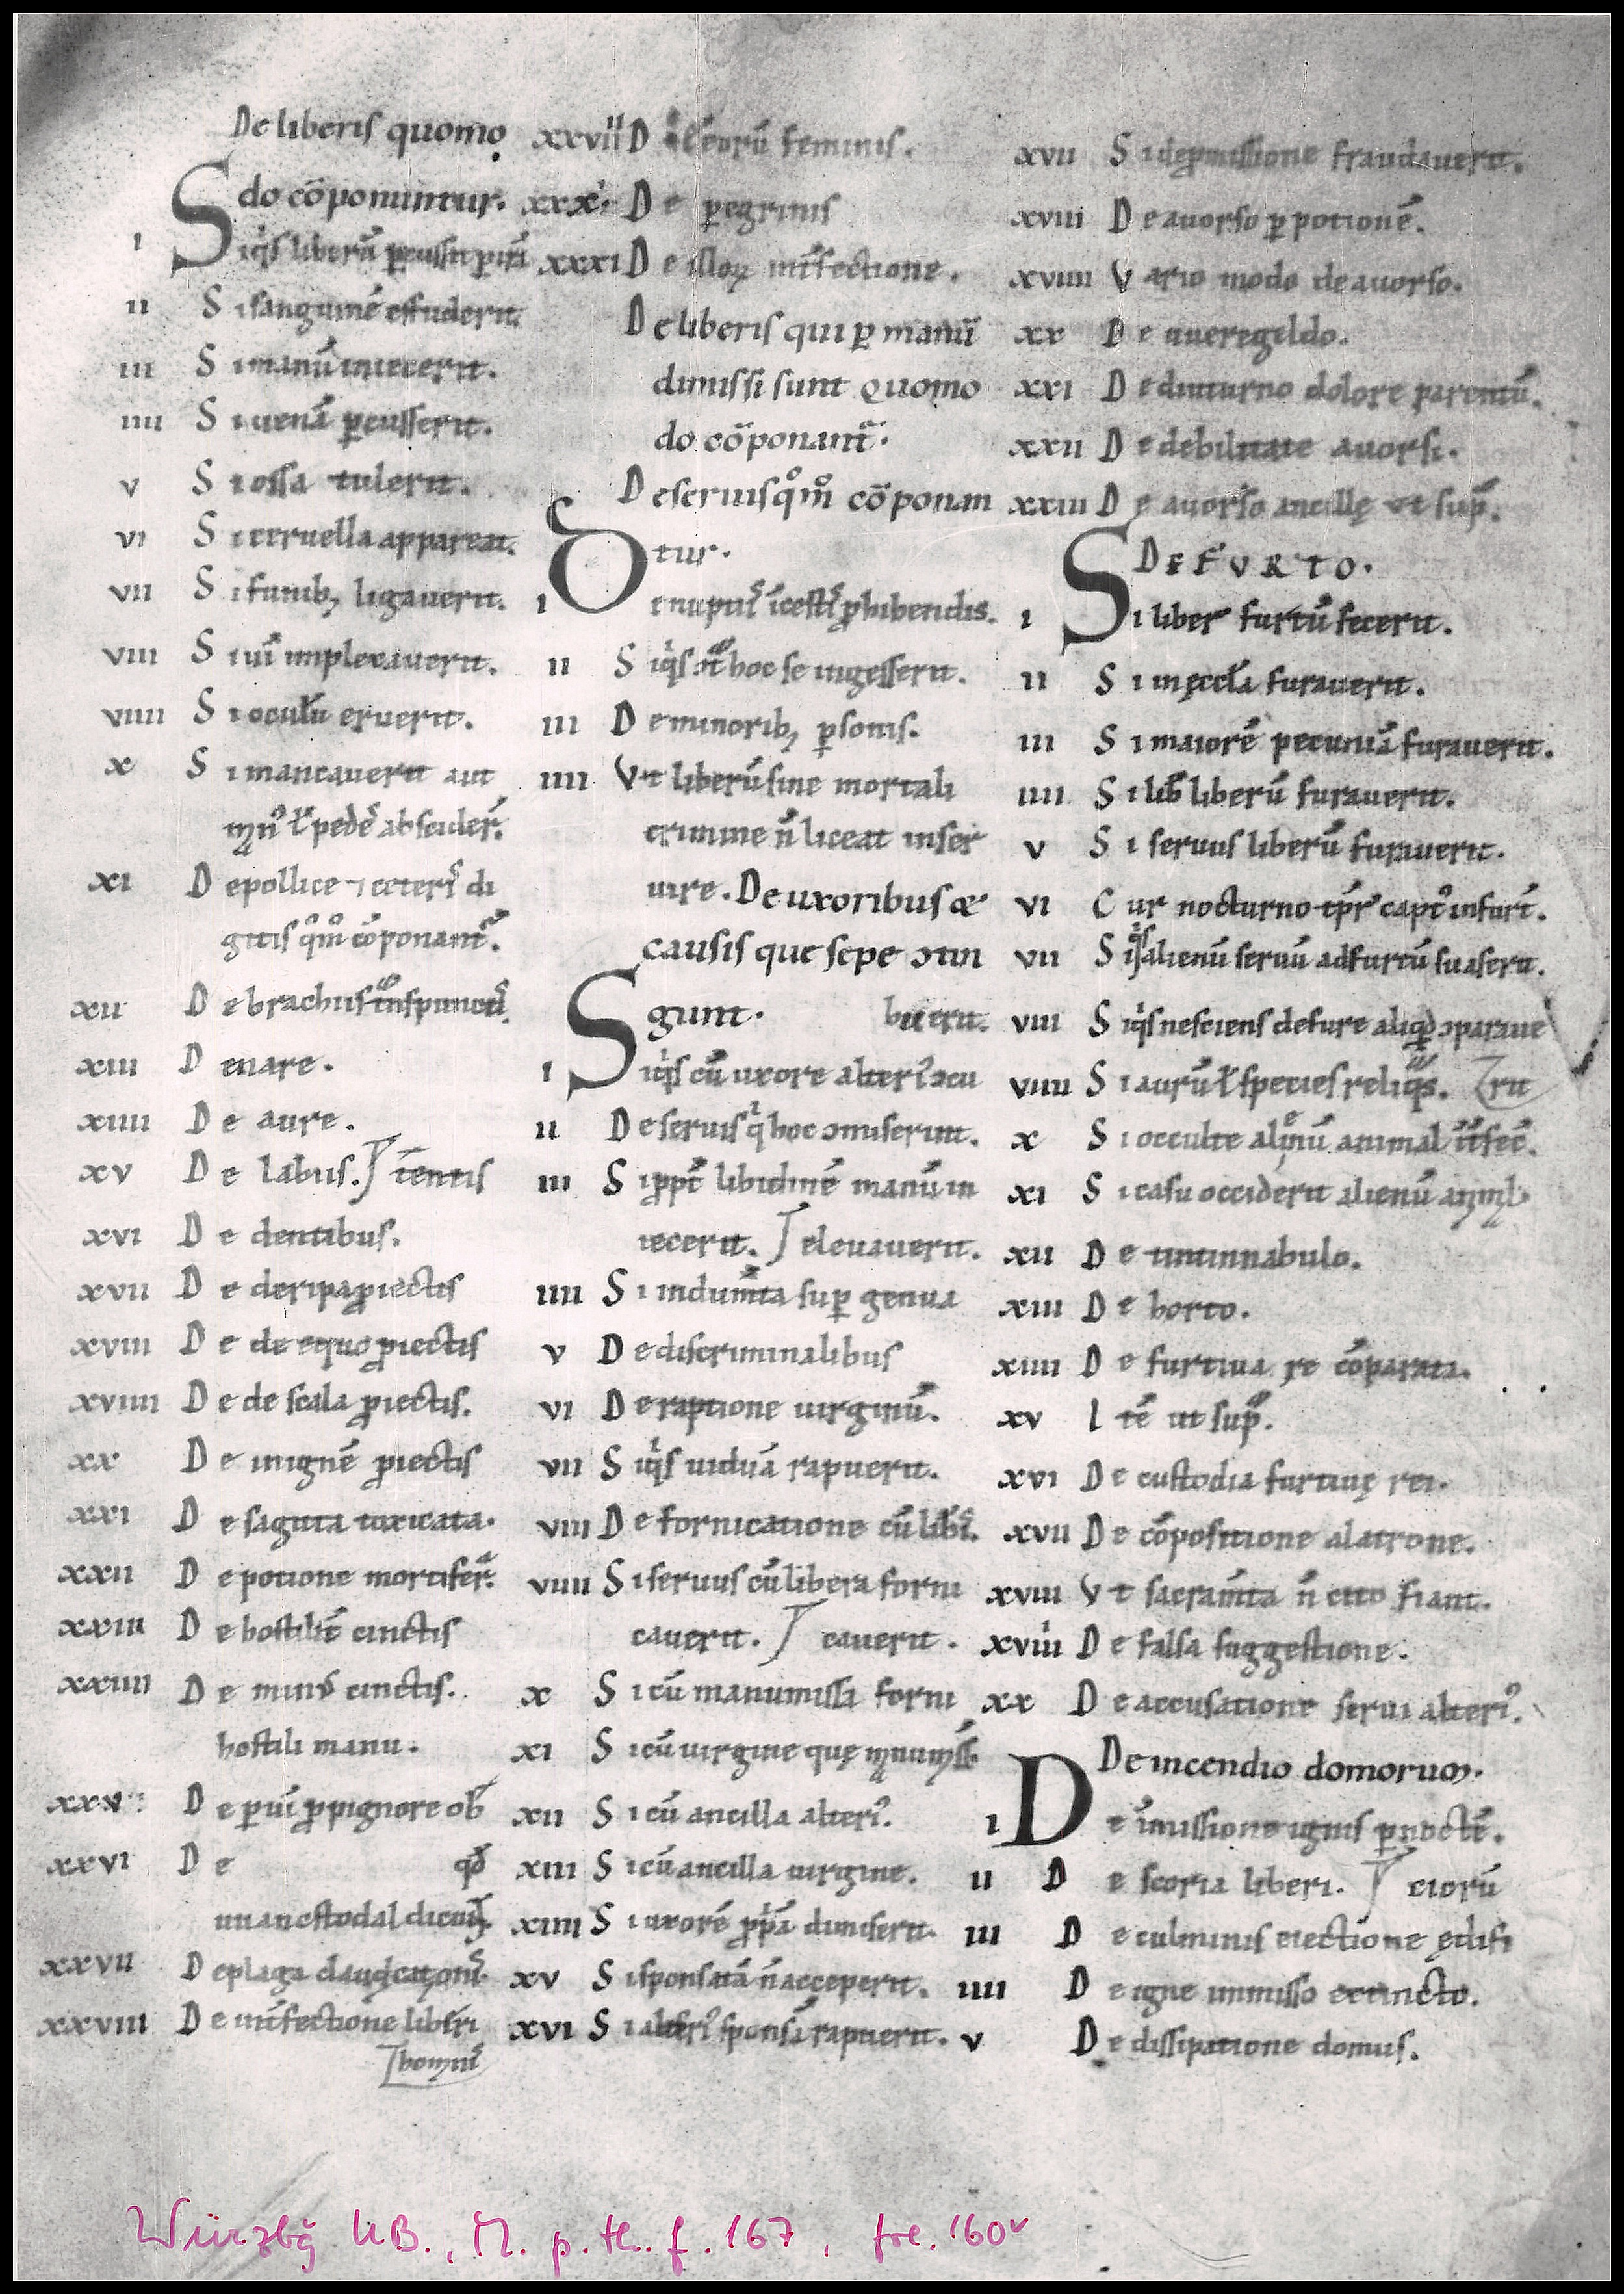 De liberis quomo
do cōponuntur.
I Siq̇s liberū p̲cussit
II Si sanguinē effuderit.
III Si manū iniecerit.
IIII Si uenā p̲cusserit.
V Si ossa tulerit.
VI Si ceruella appareat.
VII Si funib; ligauerit.
VIII Si uiā implecauerit.
VIIII Si oculū eruerit.
X Si mancauerit aut
ł pedē abscider̄.
XI De pollice ⁊ ceteris di
gitis q̊m̊ cōponant᷑.
XII De brachiis
XIII De nare.
XIIII De aure.
XV De labiis. tentis
XVI De dentibus.
XVII De de ripa ꝓiectis
XVIII De de equo ꝓiectis
XVIIII De de scala ꝓiectis.
XX De in ignē ꝓiectis
XXI De sagitta toxicata.
XXII De potione mortifer.
XXIII De hostilit̄ cinctis
XXIIII De min᷒ cinctis.
hostili manu.
XXV De
XXVI De qđ
XXVII De plaga
XXVIII De int̄fectione liberi
homin
XXVIIII D eorū feminis.
XXX De p̲egrinis
XXXI De illoꝝ int̄fectione.
De liberis qui p̲ manū
dimissi sunt quomo
do cōponant᷑.
De seruis q̊m̊ cōponun
tur.
I De nuptiis īcestis ꝓhibendis.
II Siq̇s hoc se ingesserit.
III De minorib; p̲sonis.
IIII Vt liberū sine mortali
crimine n̄ liceat inser
uire. De uxoribus &
causis que sepe ↄtin
gunt. buerit.
I Siq̇s cū uxore alteri᷒ ↄcu
II De seruis q̇ hoc ↄmiserint.
III Si ꝓpt̄ libidinē manū in
iecerit. eleuauerit.
IIII Si indum̄ta sup̲ genua
V De discriminalibus
VI De raptione uirginū.
VII Siq̇s uiduā rapuerit.
VIII De fornicatione cū libis.
VIIII Si seruus cū libera forni
cauerit. cauerit.
X Si cū manumissa forni
XI Si cū uirgine quę
XII Si cū ancilla alteri᷒.
XIII Si cū ancilla uirgine.
XIIII Si uxorē ꝓpā dimiserit.
XV Si sponsatā n̄ acceperit.
XVI Si alteri᷒ sponsā rapuerit.
XVII Si de p̲missione fraudauerit.
XVIII De auorso p̲ potionē.
XVIIII Vario modo de auorso.
XX De uueregeldo.
XXI De diuturno dolore parentū.
XXII De debilitate auorsi.
XXIII De auorso ancillę ut sup̄.
DE FVRTO.
I Si liber furtū fecerit.
II Si in ęccła furauerit.
III Si maiorē pecuniā furauerit.
IIII Si lib̄ liberū furauerit.
V Si seruus liberū furauerit.
VI Cur nocturno tp̄r capt᷒ in furt̄.
VII Siq̇s alienū seruū ad furtū suaserit.
VIII Siq̇s nesciens de fure aliqđ ↄparaue
VIIII Si aurū ł species reliq̇s. rit
X Si occulte alienū animal īt̄fec̄.
XI Si casu occiderit alienū
XII De tintinnabulo.
XIII De horto.
XIIII De furtiua re cōparata.
XV Itē ut sup̄.
XVI De custodia furtiuę rei.
XVII De cōpositione a latrone.
XVIII Vt sacram̄ta n̄ cito fiant.
XVIIII De falsa suggestione.
XX De accusatione serui alteri᷒.
De incendio domorum.
I De īmissione ignis p̲ noctē.
II De scoria liberi. ciorū
III De culminis eiectione ędifi
IIII De igne immisso extincto.
V De dissipatione domus.
Würzbg UB., M. p. th. f. 167, fol. 160v